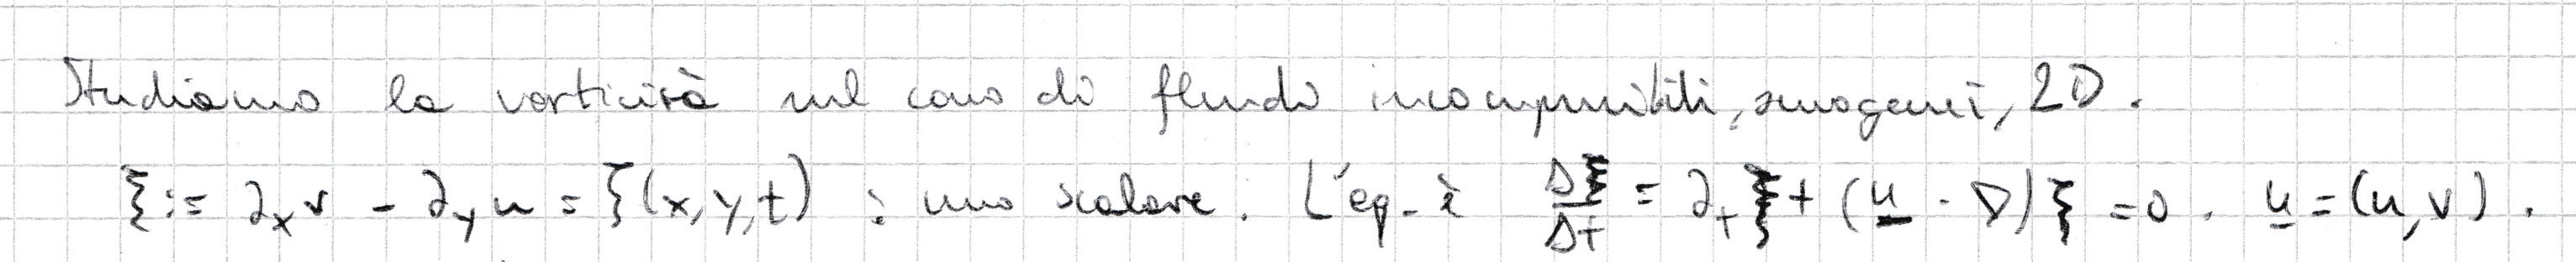 Studiamo la vorticità nel caso di fluidi incomprimibili, omogenei, 2D.
ξ := ∂ₓv - ∂ᵧu = ξ(x,y,t) : uno scalare. L'eq. è Dξ/Dt = ∂ₜξ + (u · ∇)ξ = 0. u = (u,v).